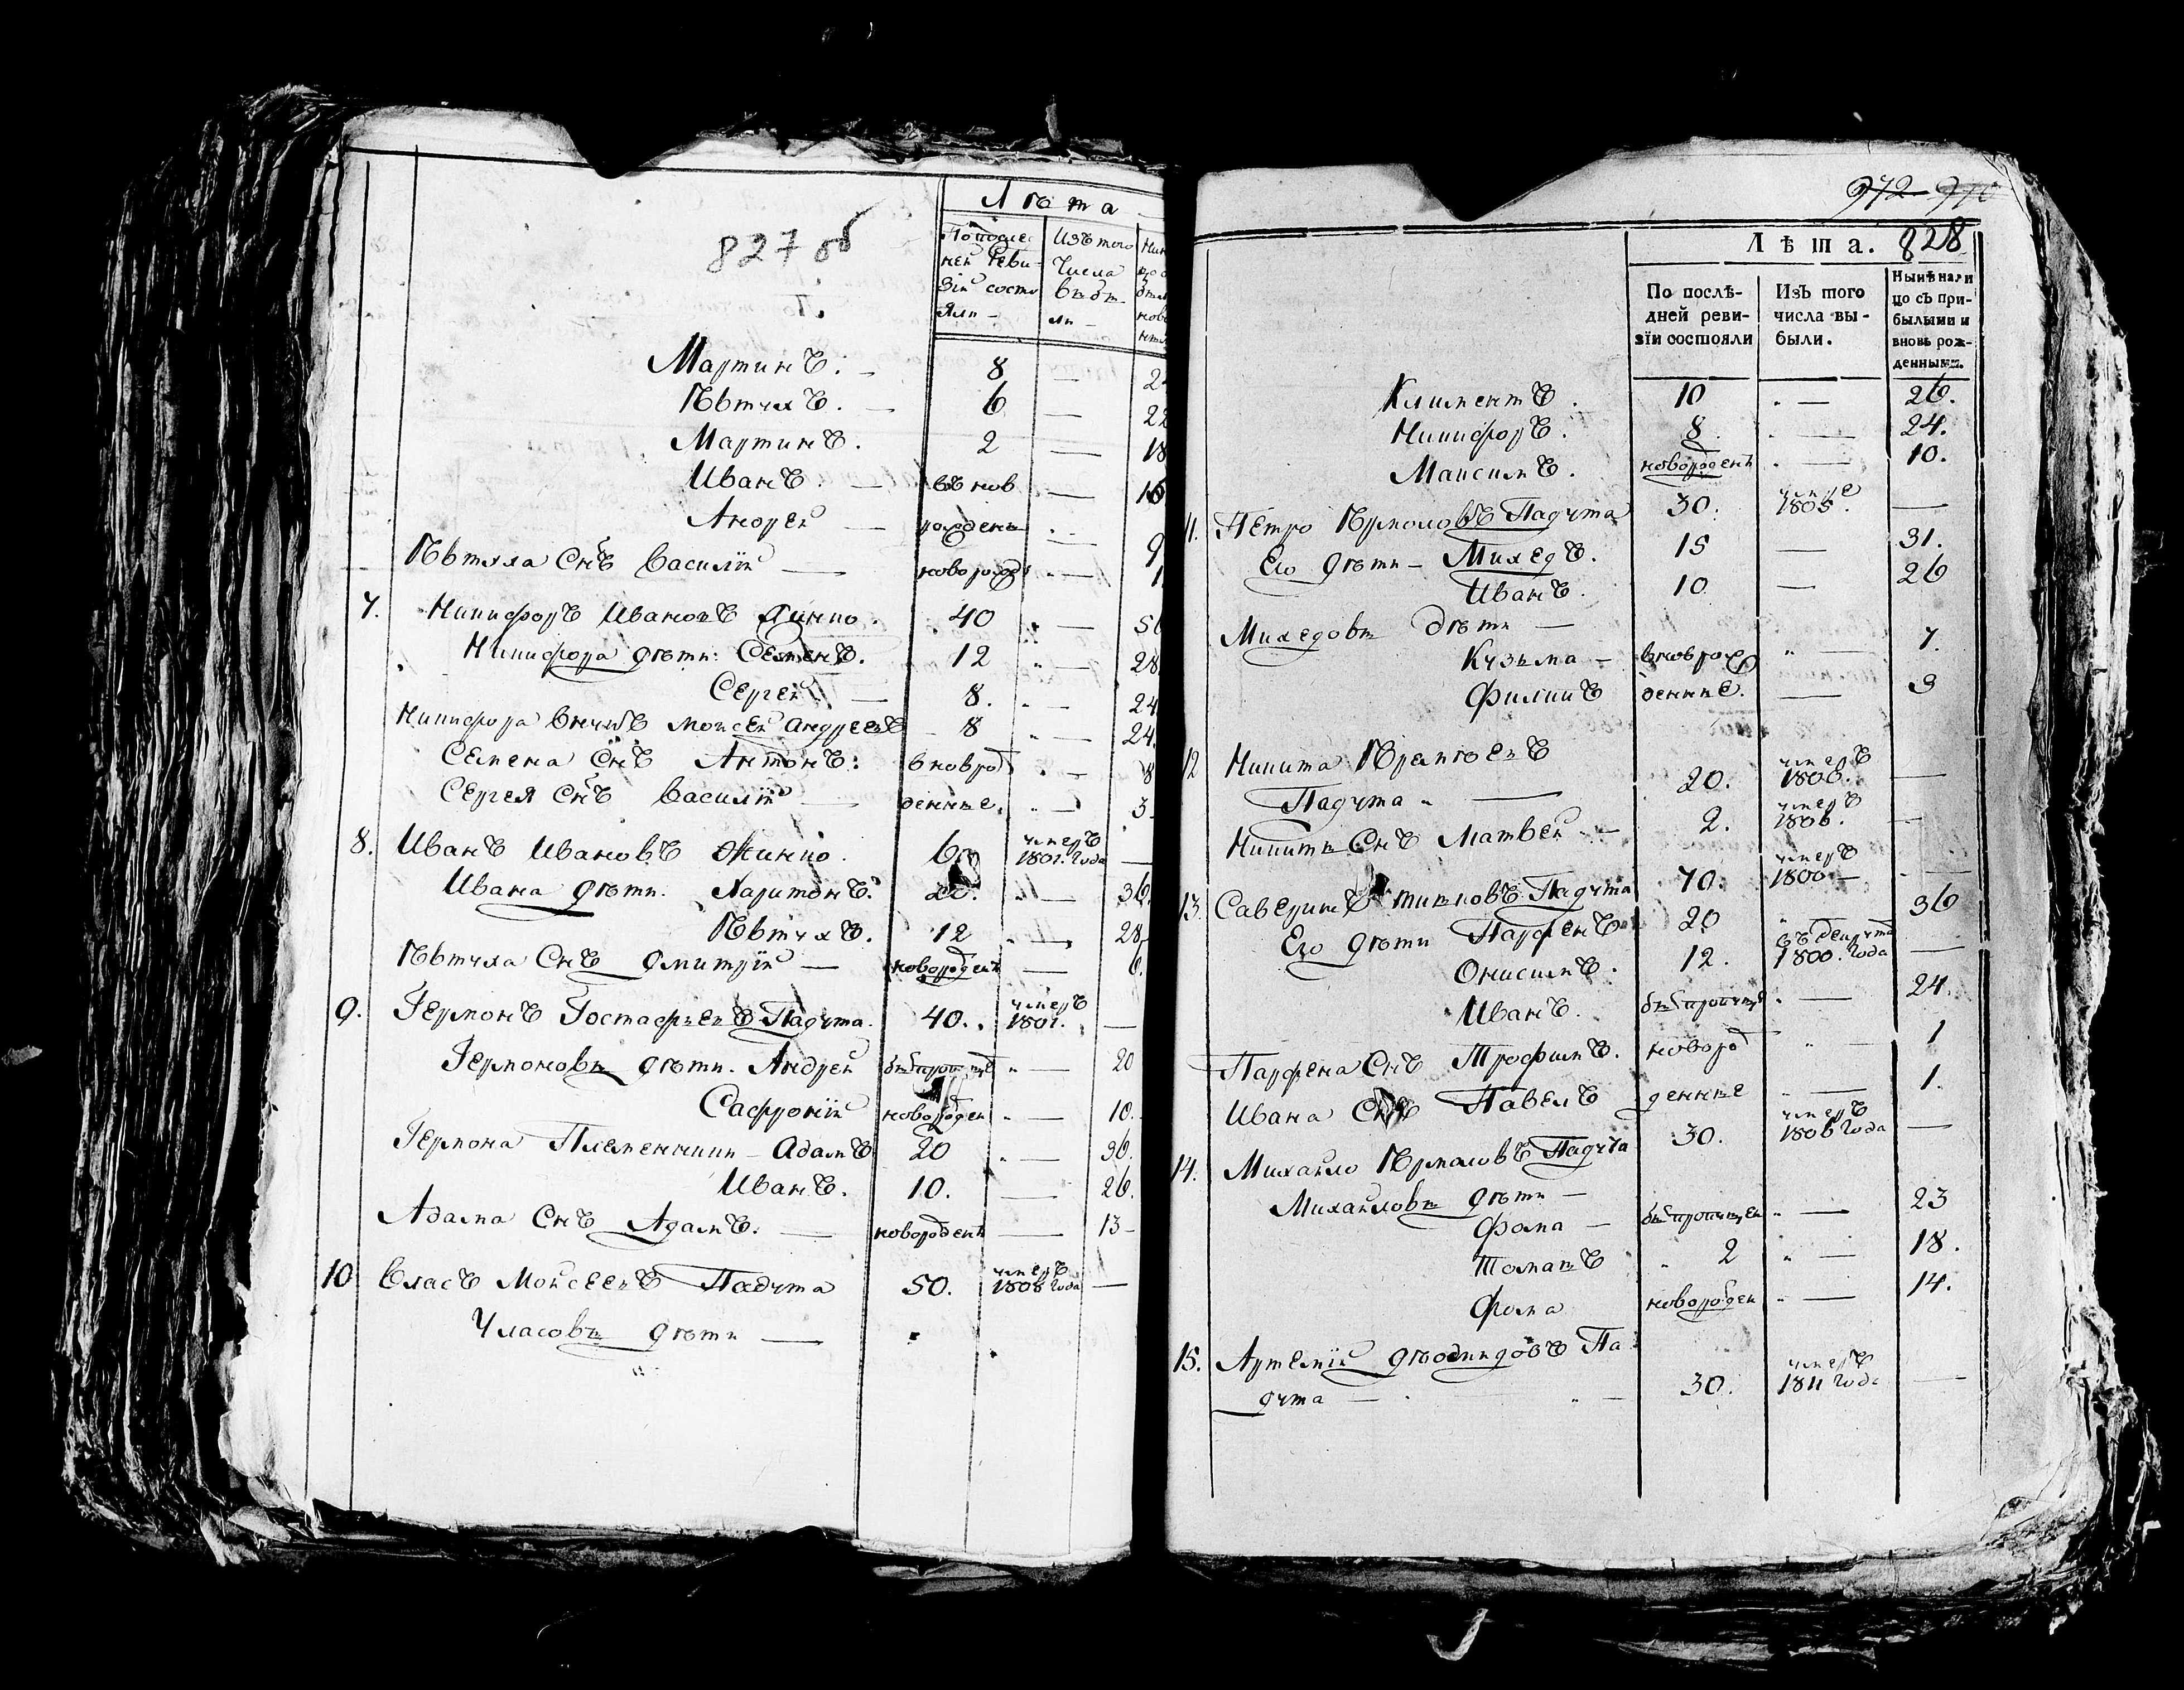 827 об
Лѣта
По послѣд
ней реви
зіи состо
яли
Изъ того
числа
выбы
ли
Мартинъ. 8 —
Євтухъ. 6 — 22
Мартинъ. 2 — 18
Иванъ. вънов — 16
Андрей рожденн — 9
Євтуха Снъ Василій новорожд — 1
7. Никифоръ Ивановъ 40 —
Никифора дѣти: Семенъ. 12 — 28
Сергей 8. — 24
Никифора внучъ Мойсей Андреевъ 8 — 24.
Семена Снъ Антонъ. вноврож — 8
Сергея Снъ Василій денные. — 3
8. Иванъ Ивановъ 60 умеръ 1801. года —
Ивана дѣти. Харитонъ. 20. — 36.
Євтухъ. 12 — 28
Євтуха Снъ Дмитрій — новорожден — 6.
9. Гермонъ Гостафьевъ Падута. 40. умеръ 1801. —
Гермоновы дѣти. Андрей — 20
Сафроній новорожден — 10.
Гермона Племенники – Адамъ 20 — 36.
Иванъ. 10. — 26.
Адама Снъ Адамъ. новорожден — 13
10 Власъ Мойсеевъ Падута 50. умеръ 1806 года —
Уласовы дѣти —
972 910
828
Лѣта.
По послѣ-
дней реви-
зіи состояли
Изъ того
числа вы-
были.
Нынѣ нали
цо съ при-
былыми и
вновь рож-
денными.
Климентъ. 10 — 26.
Никифоръ. 8 — 24.
Максимъ. новорожден — 10.
11. Петро Єрмоловъ Падута 30. умре 1805. —
Его дѣти – Михедъ. 15 — 31.
Иванъ. 10 — 26
Михедовы дѣти —
Кузьма – вноврож — 7.
Филипъ денные. — 3
12 Никита Єремѣевъ
Падута — 20. умеръ 1806. —
Никиты Снъ Матвей 2. умеръ 1806. —
13. Саверинъ Падута 70. умеръ 1800 —
Его дѣти Парфенъ 20 — 36
Онисимъ. 12. 1800. года —
Иванъ. — 24.
Парфена Снъ Трофимъ. новорож — 1
Ивана Снъ Павелъ денные — 1.
14. Михайло Єрмоловъ Падута 30. умеръ 1806 года —
Михайловы дѣти —
Фома — — 23
2 — 18.
Фома новорожден — 14.
15. Артемій Па
дута — 30. умеръ 1811 года —